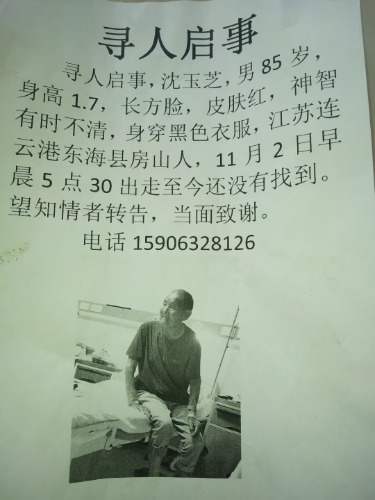 寻人启事
寻人启事，沈玉芝，男 85 岁，
身高 1.7，长方脸，皮肤红，神智
有时不清，身穿黑色衣服，江苏连
云港东海县房山人，11 月 2 日早
晨 5 点 30 出走至今还没有找到。
望知情者转告，当面致谢。
电话 15906328126